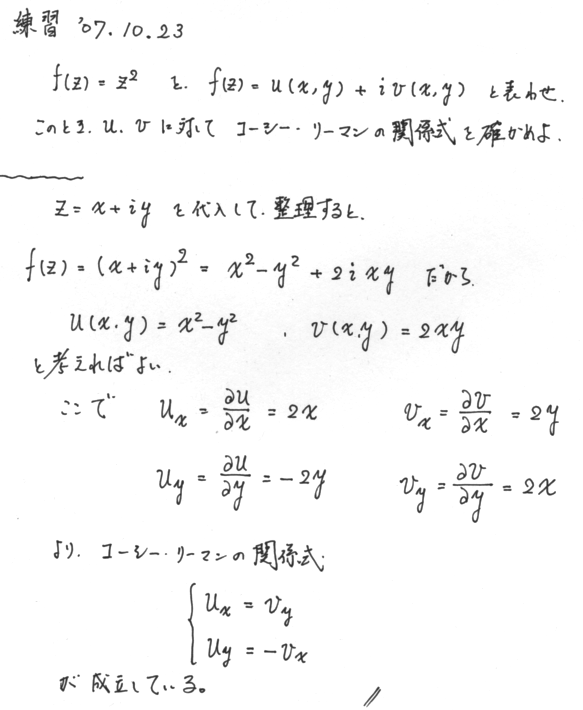 練習 '07.10.23
f(z) = z² を. f(z) = u(x,y) + i v(x,y) と表わせ.
このとき. u, v に対して コーシー・リーマンの関係式を確かめよ.
z = x + iy を代入して. 整理すると.
f(z) = (x+iy)² = x² - y² + 2ixy だから.
u(x.y) = x² - y² , v(x.y) = 2xy
と考えればよい.
ここで uₓ = ∂u/∂x = 2x vₓ = ∂v/∂x = 2y
u_y = ∂u/∂y = -2y v_y = ∂v/∂y = 2x
より. コーシー・リーマンの関係式;
{ uₓ = v_y
u_y = -vₓ
が成立している。 //